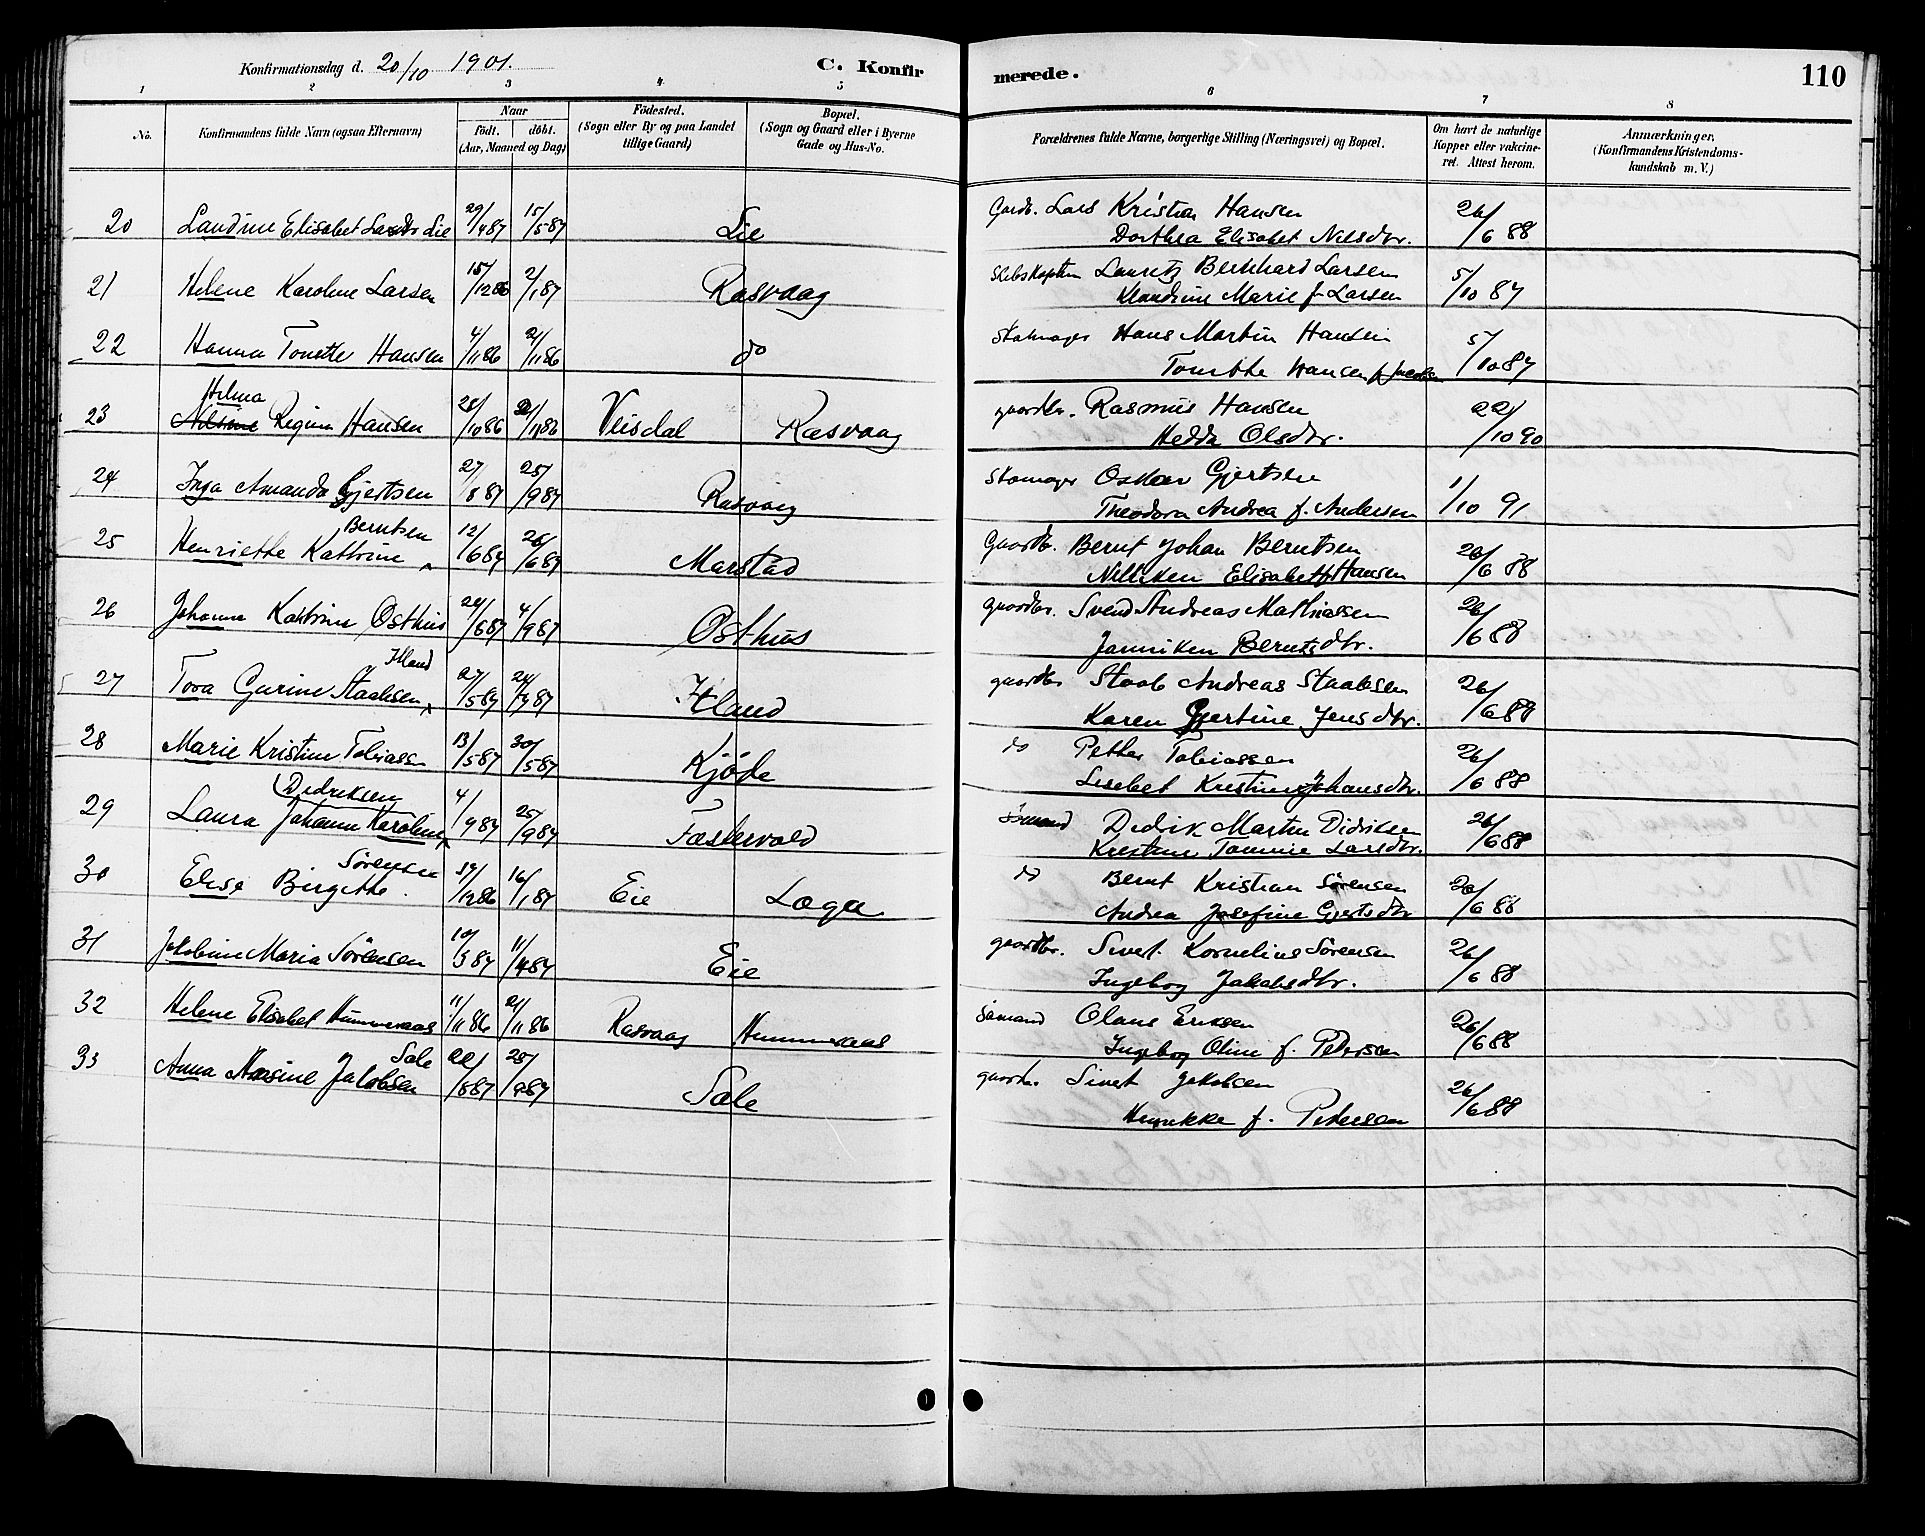 Konfirmationsdag d. 20/10 1901.
C. Konfirmerede.
110
1 2 3 4 5 6 7 8
No.
Konfirmandens fulde Navn (ogsaa Efternavn)
Naar
födt. döbt.
(Aar, Maaned og Dag)
Födested.
(Sogn eller By og paa Landet
tillige Gaard)
Bopæl.
(Sogn og Gaard eller i Byerne
Gade og Hus-No.
Forældrenes fulde Navne, borgerlige Stilling (Næringsvei) og Bopæl.
Om havt de naturlige
Kopper eller vakcine-
ret. Attest herom.
Anmærkninger.
(Konfirmandens Kristendoms-
kundskab m. V.)
20 Landine Elisabet Lie 29/4 87 15/5 87 Lie Gardb. Lars Kristian Hansen 26/6 88
Dorthea Elisabet Nilsdtr.
21 Helene Karoline Larsen 15/12 86 2/1 87 Rasvaag Lauritz Bernhard Larsen 5/10 87
Klaudine Marie f. Larsen
22 Hanna Tonette Hansen 4/11 86 21/11 86 do Skomager Hans Martin Hansen 5/10 87
Tonette Hansen f. Jacobsen
Helma
23 Nilsine Regine Hansen 28/10 86 Veisdal Rasvaag gaardbr. Rasmus Hansen 22/10 90
Hedda Olsdtr.
24 Inga Amanda Gjertsen 27/8 87 25/9 87 Rasvaag Skomager Oskar Gjertsen 1/10 91
Theodora Andrea f. Andersen
Berntsen
25 Henriette Kathrine 12/6 87 26/6 87 Marstad Gaardbr. Bernt Johan Berntsen 26/6 88
Nilliken Elisabet f. Hansen
26 Johanne Kathrine Osthus 4/9 87 Osthus gaardbr. Svend Andreas Mathiassen 26/6 88
Janniken Berntsdtr.
Itland
27 Tora Gurine Staalesen 27/5 87 Itland gaardbr Staale Andreas Staalesen 26/6 88
Karen Gjertine Jensdtr.
28 Marie Kristine Tobiassen 13/5 87 30/5 87 Kjöde do Petter Tobiassen 26/6 88
Lisebet Kristine Johansdtr.
Didriksen
29 Laura Johanne Karoline 4/9 87 25/9 87 Fæstervold Sömand Didrik Martin Didriksen 26/6 88
Kristine Tomine Larsdtr.
Sörensen
30 Elise Birgitte. 19/12 86 16/1 87 Eie Loga do Bernt Kristian Sörensen 26/6 88
Andrea Josefine Gjertsdtr
31 Jakobine Maria Sörensen 10/3 87 11/4 87 Eie gaardbr. Sivert Kornelius Sörensen 26/6 88
Ingeborg Jakobsdtr.
32 Helene Elisabet Hummeraas 11/11 86 21/11 86 Rasvaag Hummeraas Sömand Olaus Eriksen 26/6 88
Ingeborg Oline f. Petersen
Sale
33 Anna Masine Jakobsen 22/8 87 25/9 87 Sale gaardbr. Sivert Jakobsen 26/6 88
Henrikke f. Petersen